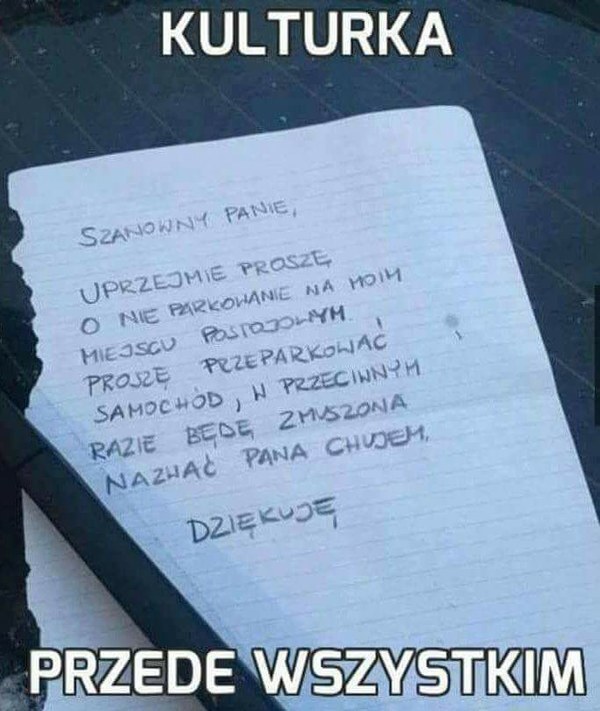 KULTURKA
SZANOWNY PANIE,
UPRZEJMIE PROSZĘ
O NIE PARKOWANIE NA MOIM
MIEJSCU POSTOJOWYM.
PROSZĘ PRZEPARKOWAĆ
SAMOCHÓD, W PRZECIWNYM
RAZIE BĘDĘ ZMUSZONA
NAZWAĆ PANA CHUJEM.
DZIĘKUJĘ
PRZEDE WSZYSTKIM